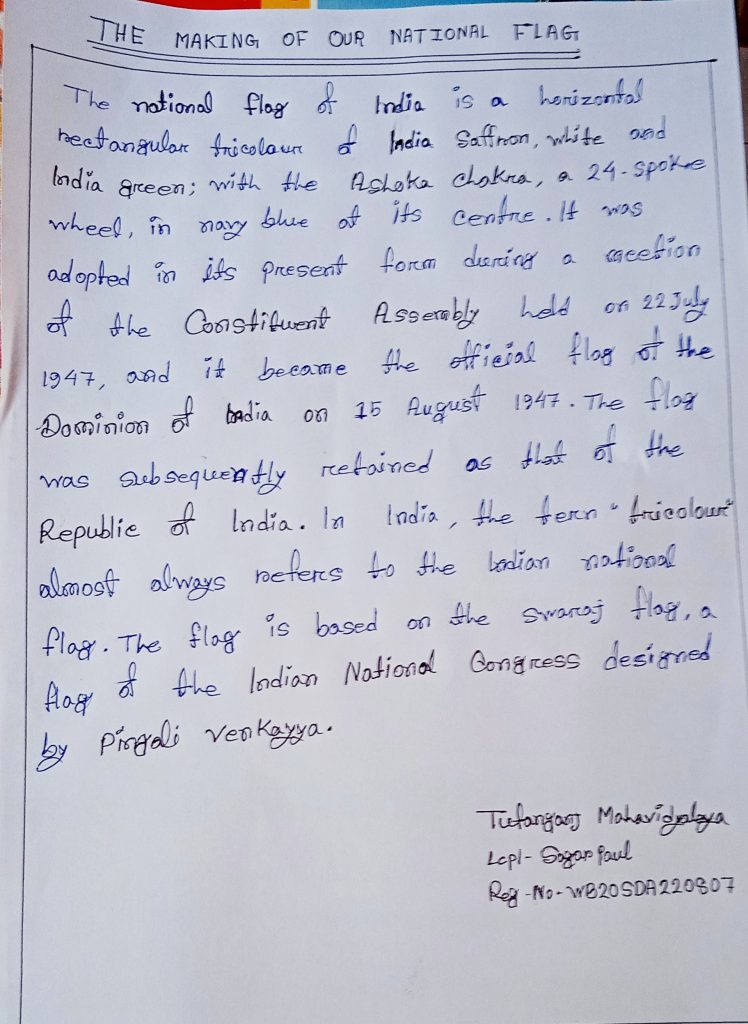 THE MAKING OF OUR NATIONAL FLAG
The national flag of India is a horizontal
rectangular tricolour of India Saffron, white and
India green; with the Ashoka chakra, a 24-spoke
wheel, in navy blue at its centre. It was
adopted in its present form during a
of the Constituent Assembly held on 22 July
1947, and it became the official flag of the
Dominion of India on 15 August 1947. The flag
was subsequently retained as that of the
Republic of India. In India, the term "tricolour"
almost always refers to the Indian national
flag. The flag is based on the swaraj flag, a
flag of the Indian National Congress designed
by Pingali venkayya.
Tufanganj Mahavidyalaya
Lcpl- Sagar Paul
Reg-No-WB20SDA220807